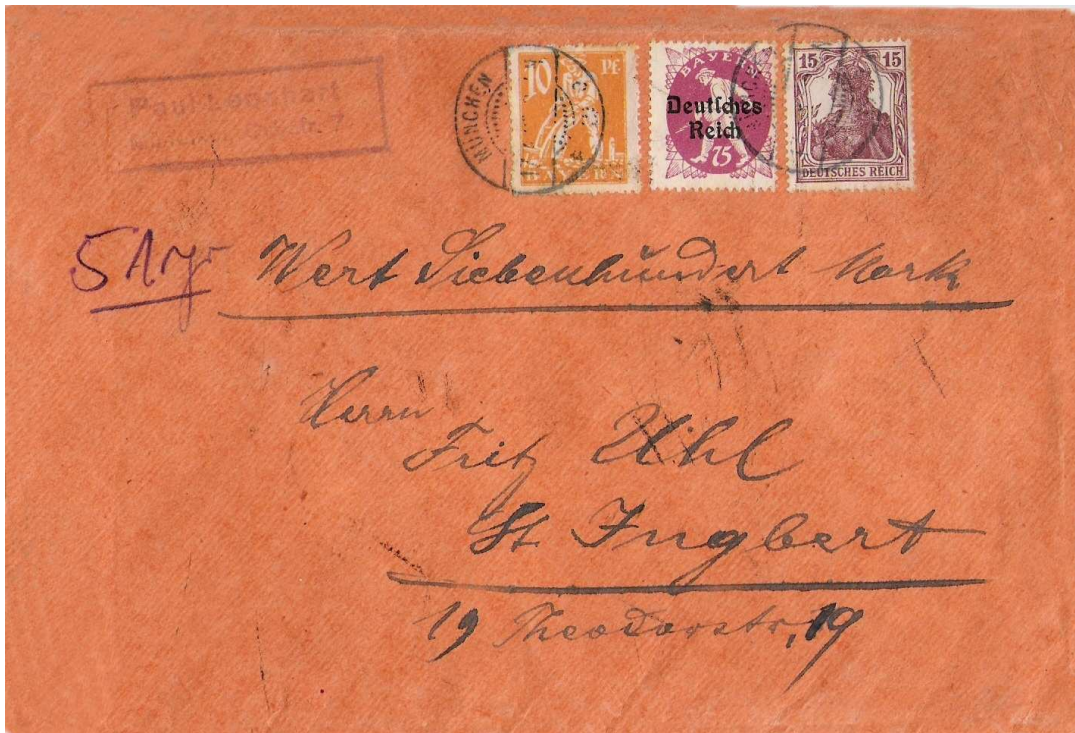 MÜNCHEN
10 PF
BAYERN
BAYERN
Deutsches
Reich
75
15 15
DEUTSCHES REICH
51 gr
Wert Siebenhundert Mark
Herrn
Fritz Uhl
St. Ingbert
19 Theodorstr, 19